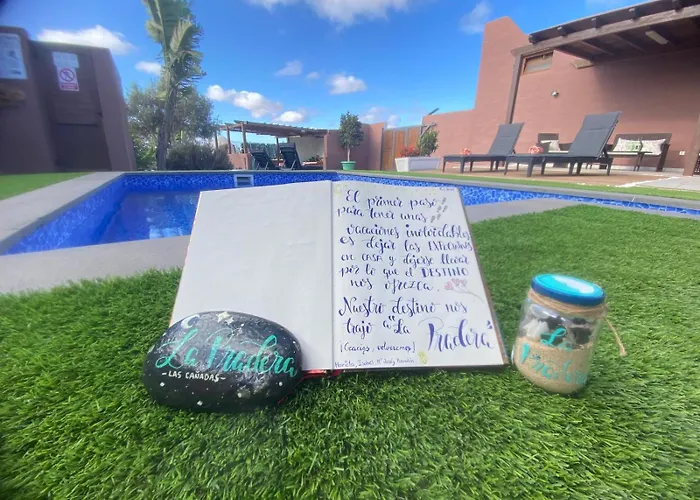 El primer paso
para tener unas
vacaciones inolvidables
es dejar las EXPECTATIVAS
en CASA y dejarse llevar
por lo que el DESTINO
nos ofrezca.
Nuestro destino nos
trajo a "La
Pradera"
(Gracias, volveremos)
La Pradera
- LAS CAÑADAS -
La
Pradera